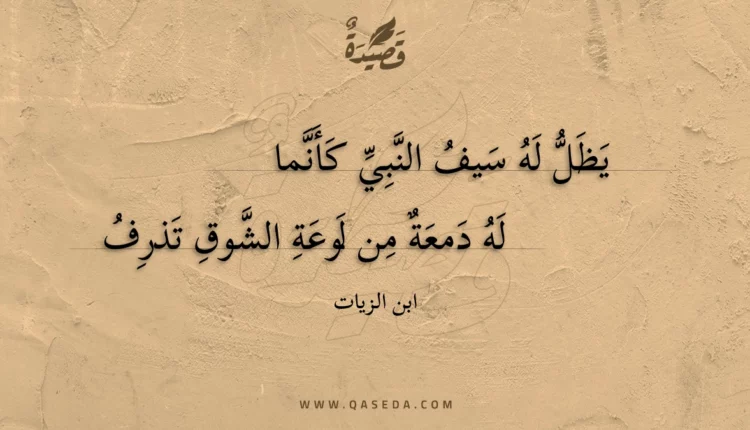 قَصِيْدَةٌ
يَظَلُّ لَهُ سَيفُ النَّبِيِّ كَأَنَّما
لَهُ دَمعَةٌ مِن لَوعَةِ الشَّوقِ تَذرِفُ
ابن الزيات
WWW.QASEDA.COM